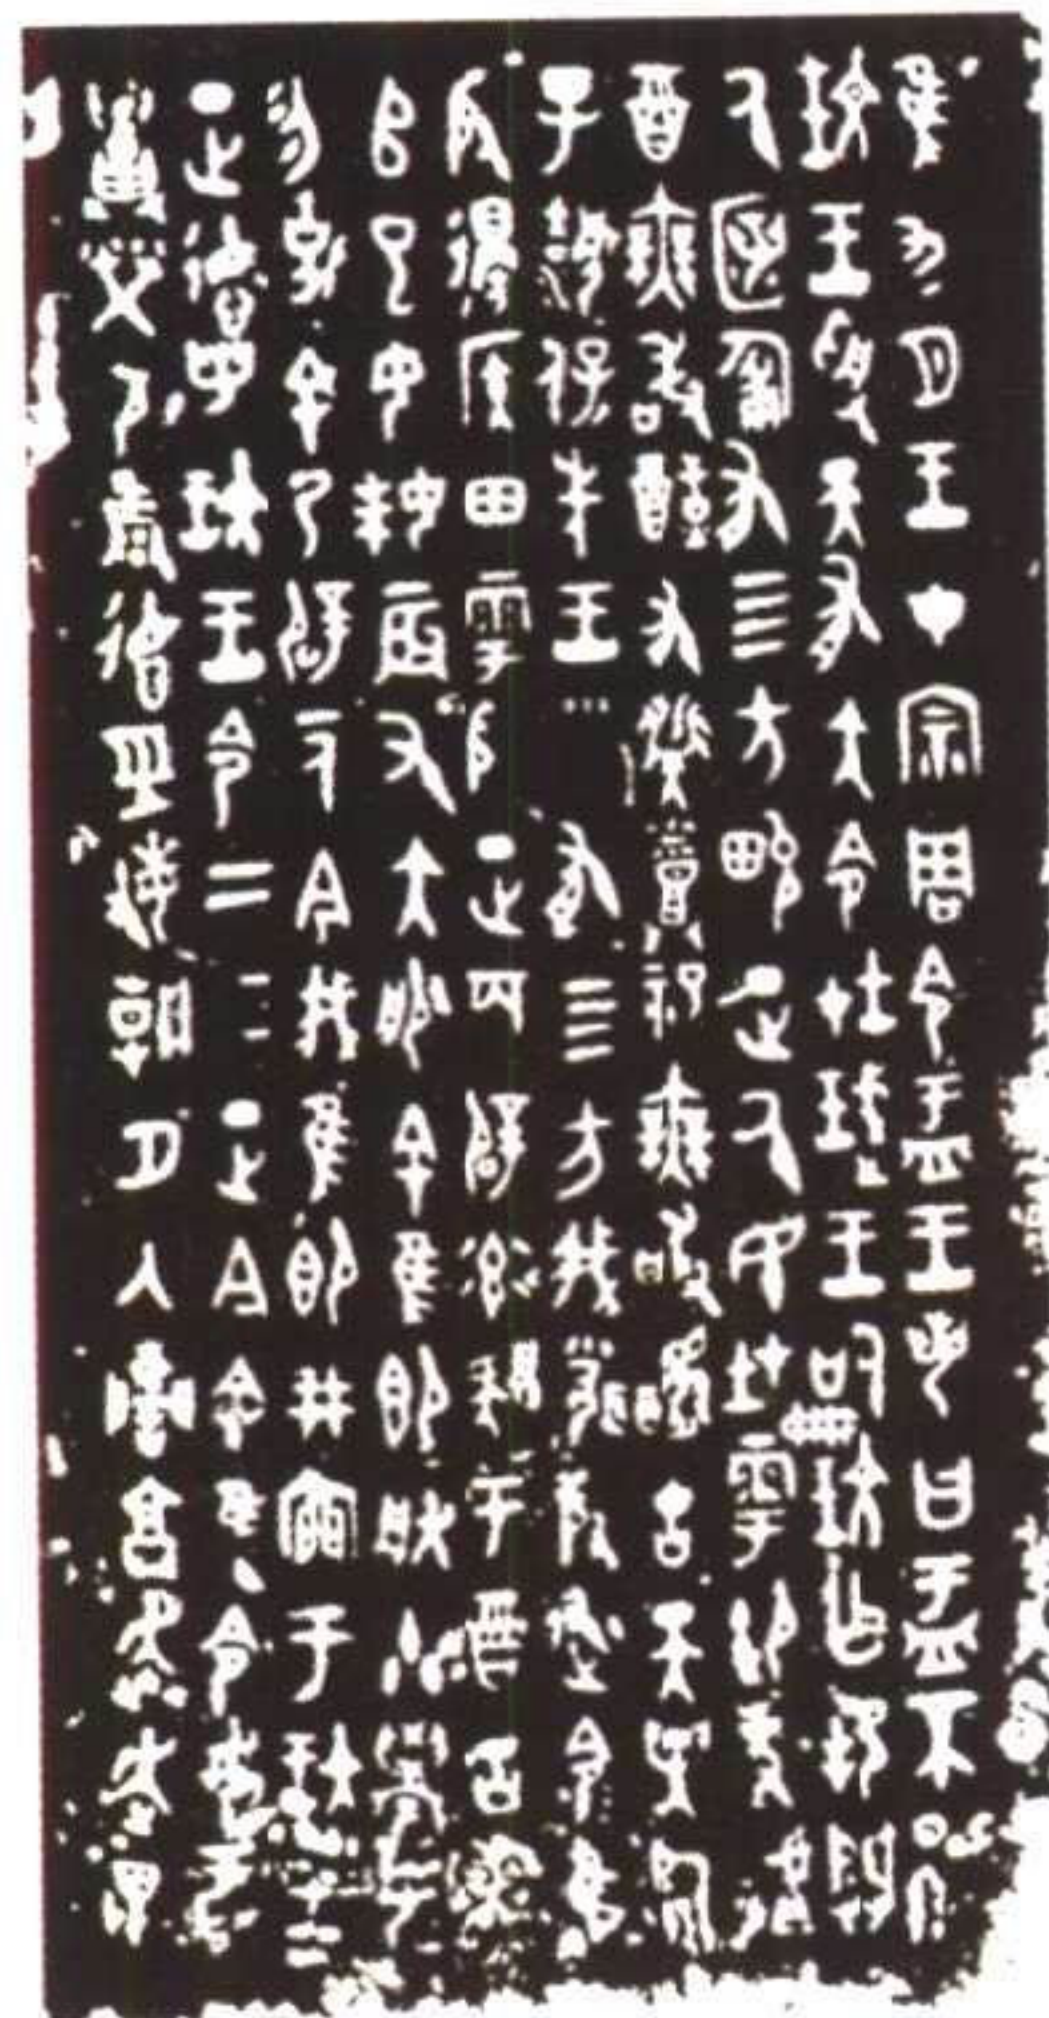 隹九月王才宗周令盂王若曰盂不顯
玟王受天有大令在珷王嗣玟乍邦闢
厥匿匍有四方畯正厥民在雩御事𠭯
酉無敢酖有祡蒸祀無敢醻古天異臨
子灋保先王有四方我聞殷述令隹
殷邊侯田雩殷正百辟率肄于酉古喪
𠂤巳女妹辰又大服余隹即朕小學女
勿𠟭余乃辟一人今我隹即井稟于玟王
正德若玟王令二三正今余隹令女盂
召榮敬雍德經敏朝夕入讕享奔走畏